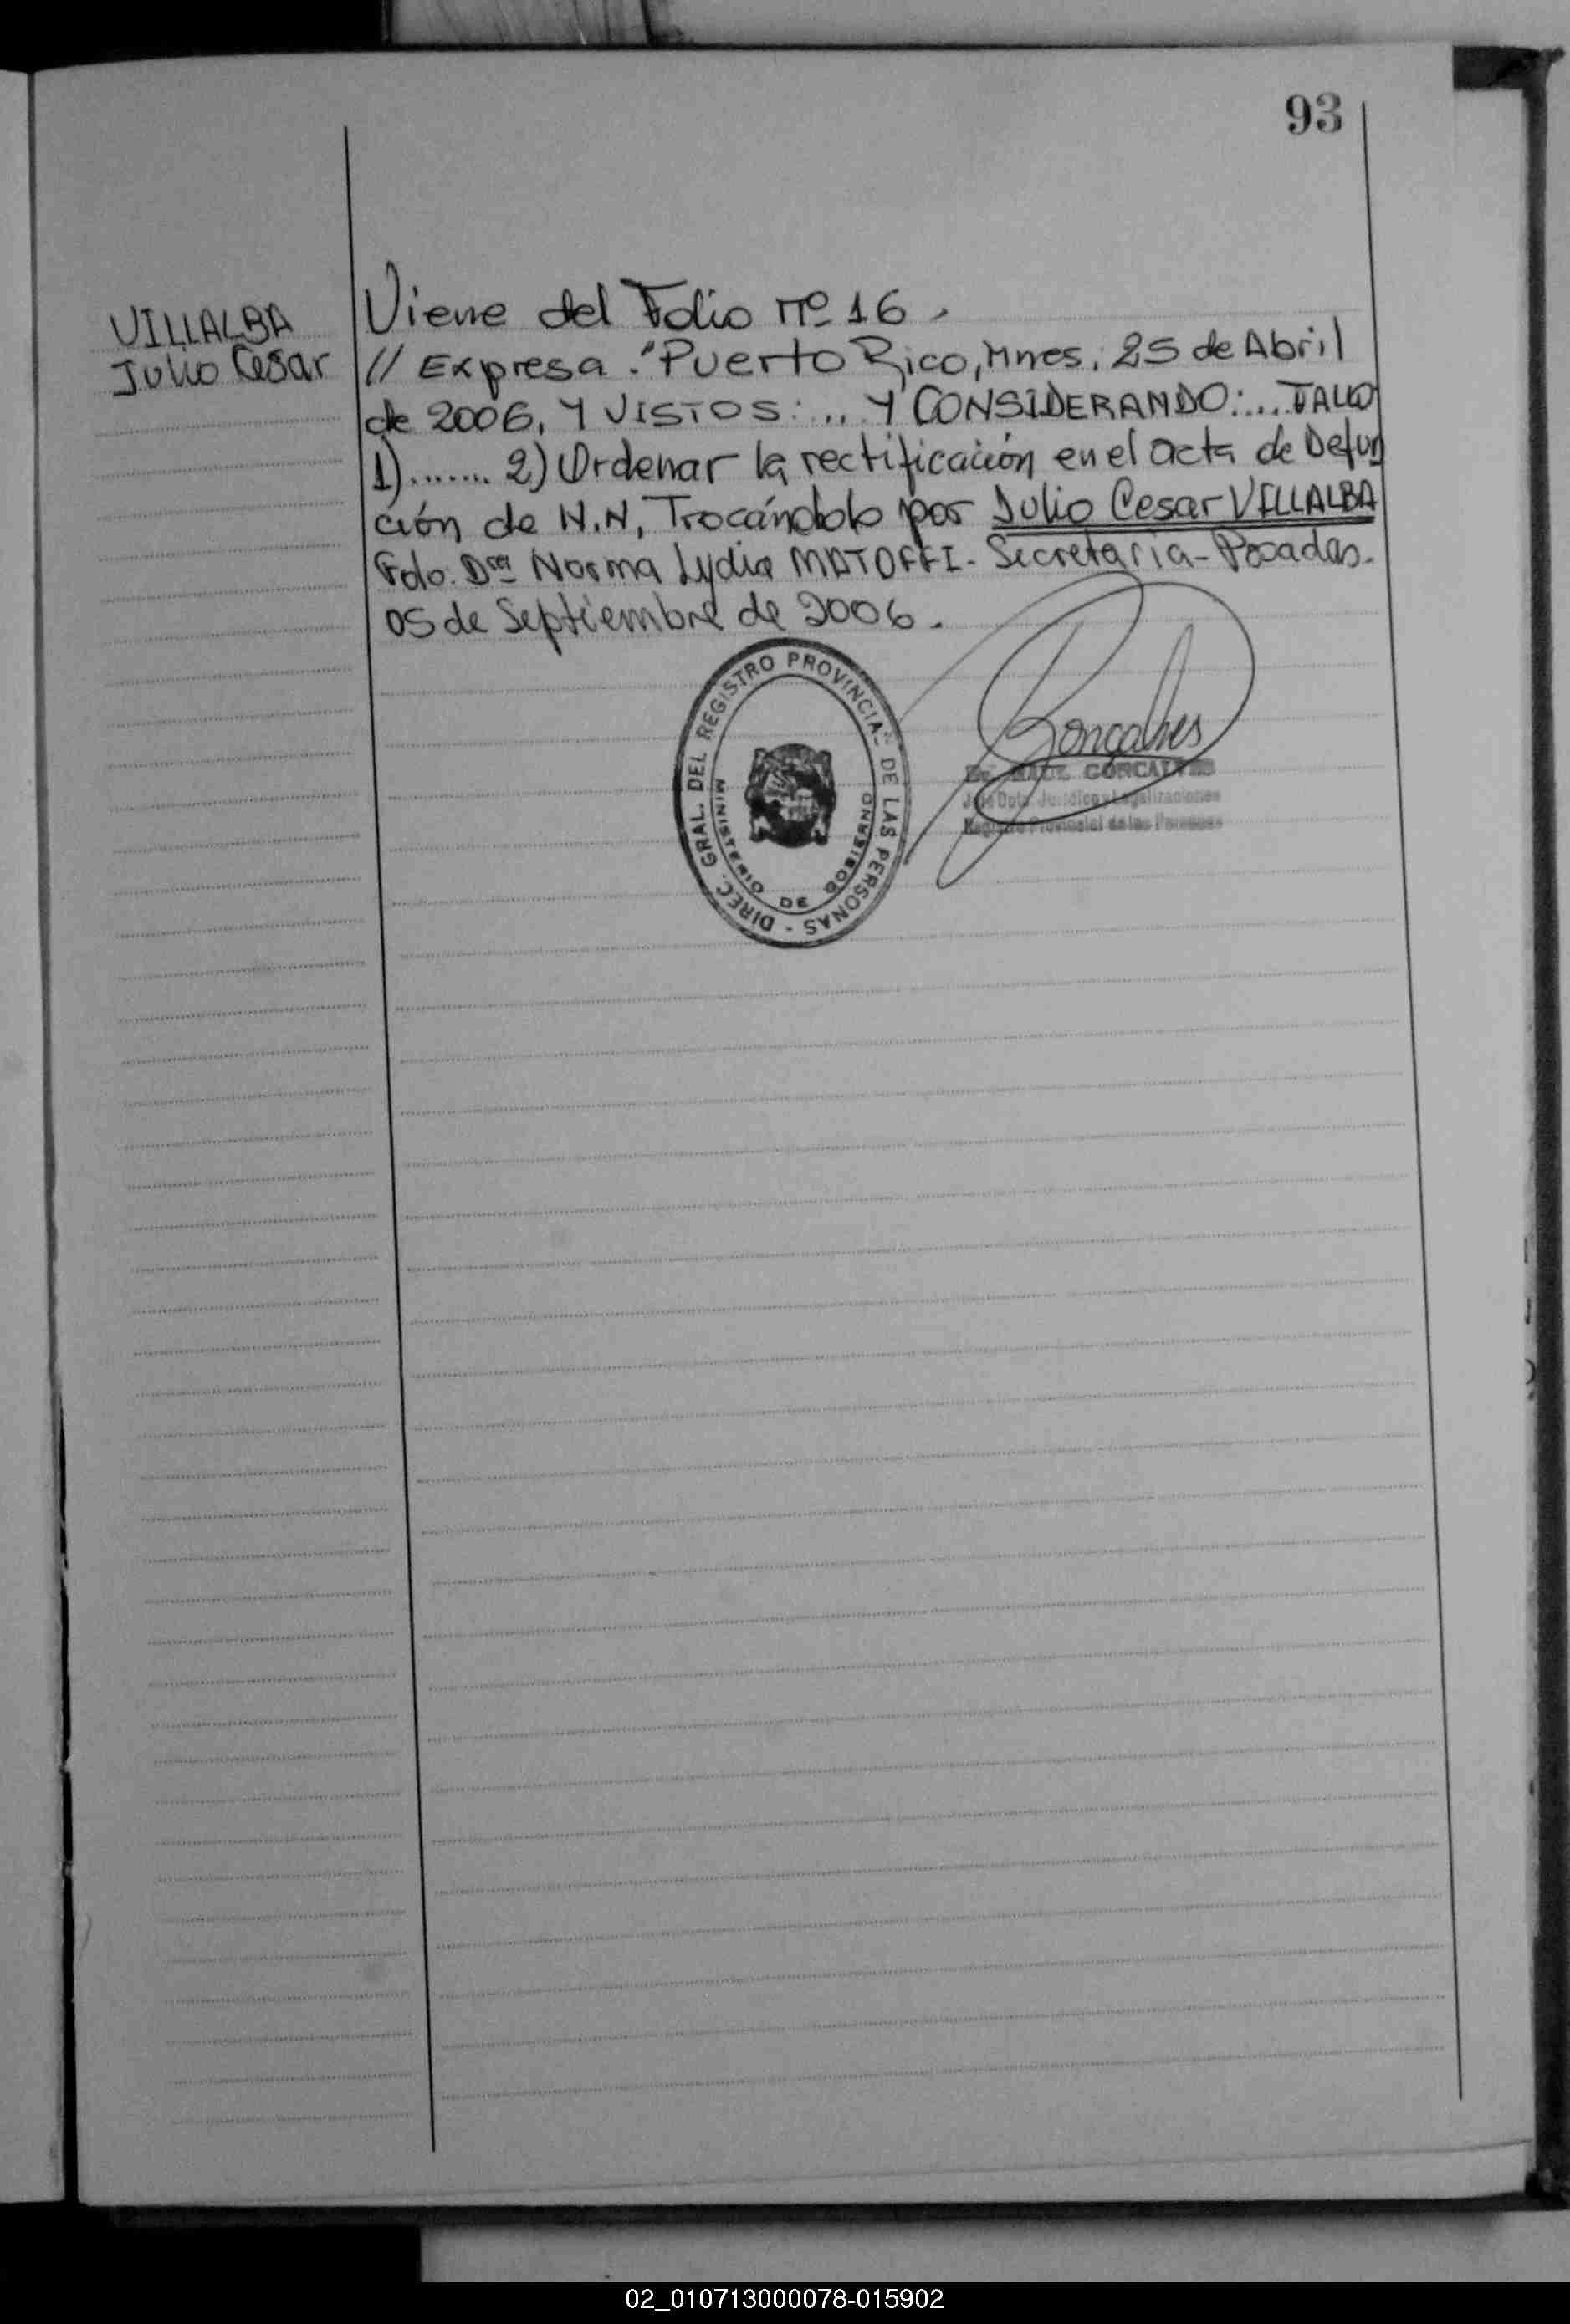 93
VILLALBA
Julio Cesar
Viene del Folio nº 16.
// Expresa: "Puerto Rico, Mnes. 25 de Abril
de 2006, Y VISTOS:... Y CONSIDERANDO:... FALLO
1)....... 2) Ordenar la rectificación en el acta de Defun
ción de N.N, Trocándolo por Julio Cesar VILLALBA
Fdo. Dra Norma Lydia MATOFFI - Secretaria - Posadas.
05 de Septiembre de 2006.
DIREC. GRAL. DEL REGISTRO PROVINCIAL DE LAS PERSONAS -
MINISTERIO DE GOBIERNO
Gonçalves
Dr. RAUL GONCALVES
Jefe Dpto. Jurídico y Legalizaciones
Registro Provincial de las Personas
02_010713000078-015902